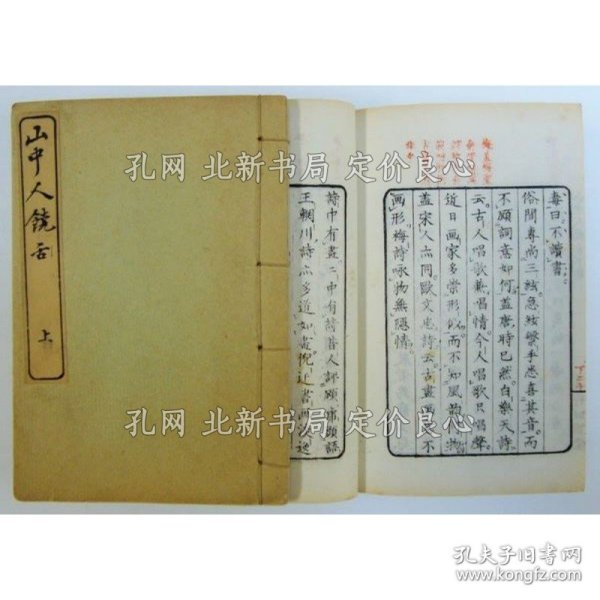 山中人饒舌
上
毒曰不讀書
俗間專尚三絃急絃繁手悉喜其音而
不願詞意如何蓋唐時已然白樂天詩
云古人唱歌兼唱情今人唱歌只唱聲
近日画家多崇形似而不知風韻物
蓋宋人亦同歐文忠詩云古畫画意不
画形梅詩咏物無隱情
詩中有畫中有詩昔人評
王輞川詩亦多道如畫
孔网 北新书局 定价良心
孔网 北新书局 定价良心
孔网 北新书局 定价良心
孔夫子旧书网
www.kongfz.com